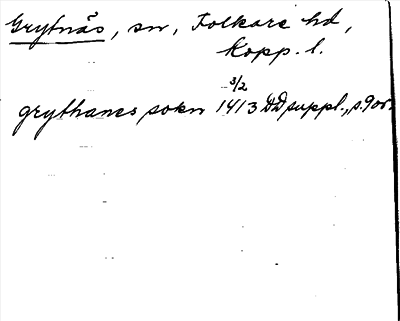 Grytnäs, sn, Folkare hd,
Kopp. l.
3/2
grythanes sokn 1413 DD suppl., s. 90 or.